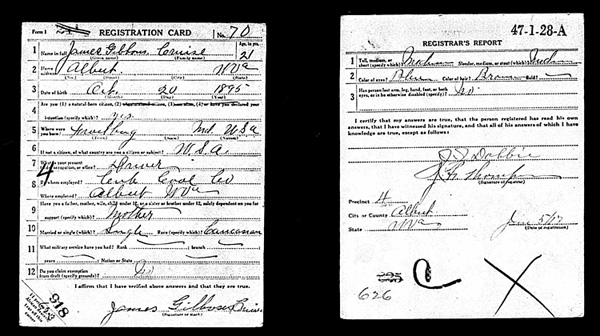 Form 1 REGISTRATION CARD No. 70
1 Name in full James Gibbons Cruise Age, in yrs. 21
(Given name) (Family name)
2 Home address Albert W Va
(No.) (Street) (City) (State)
3 Date of birth Oct. 20 1895
(Month) (Day) (Year)
4 Are you (1) a natural-born citizen, (2) a naturalized citizen, (3) an alien, (4) or have you declared your
intention (specify which)? yes
5 Where were you born? Frostburg Md. USA
(Town) (State) (Nation)
6 If not a citizen, of what country are you a citizen or subject? U.S.A.
7 What is your present trade, occupation, or office? Driver
8 By whom employed? Coal Co
Where employed? Albert W Va
9 Have you a father, mother, wife, child under 12, or a sister or brother under 12, solely dependent on you for
support (specify which)? Mother
10 Married or single (which)? Single Race (specify which)? Caucasian
11 What military service have you had? Rank branch
years Nation or State
12 Do you claim exemption from draft (specify grounds)? No
I affirm that I have verified above answers and that they are true.
James Gibbons Cruise
(Signature or mark)
918
47-1-28-A
REGISTRAR'S REPORT
1 Tall, medium, or short (specify which)? Medium Slender, medium, or stout (which)? Medium
2 Color of eyes? Blue Color of hair? Brown Bald?
3 Has person lost arm, leg, hand, foot, or both eyes, or is he otherwise disabled (specify)? No
I certify that my answers are true, that the person registered has read his own
answers, that I have witnessed his signature, and that all of his answers of which I have
knowledge are true, except as follows:
J. Dobbie
(Signature of registrar)
Precinct 4
City or County Albert
State W Va
June 5/17
(Date of registration)
626